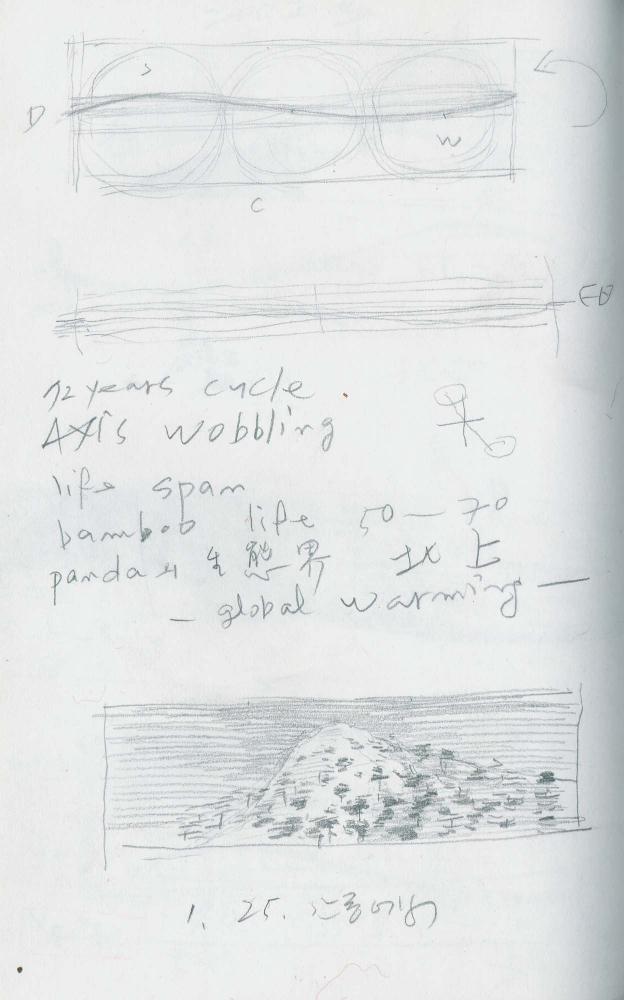 S
D
W
C
EQ
72 years cycle
AXIS wobbling
life span
bamboo life 50 — 70
panda의 生態界 北上
— global warming —
1. 25. 안동에서